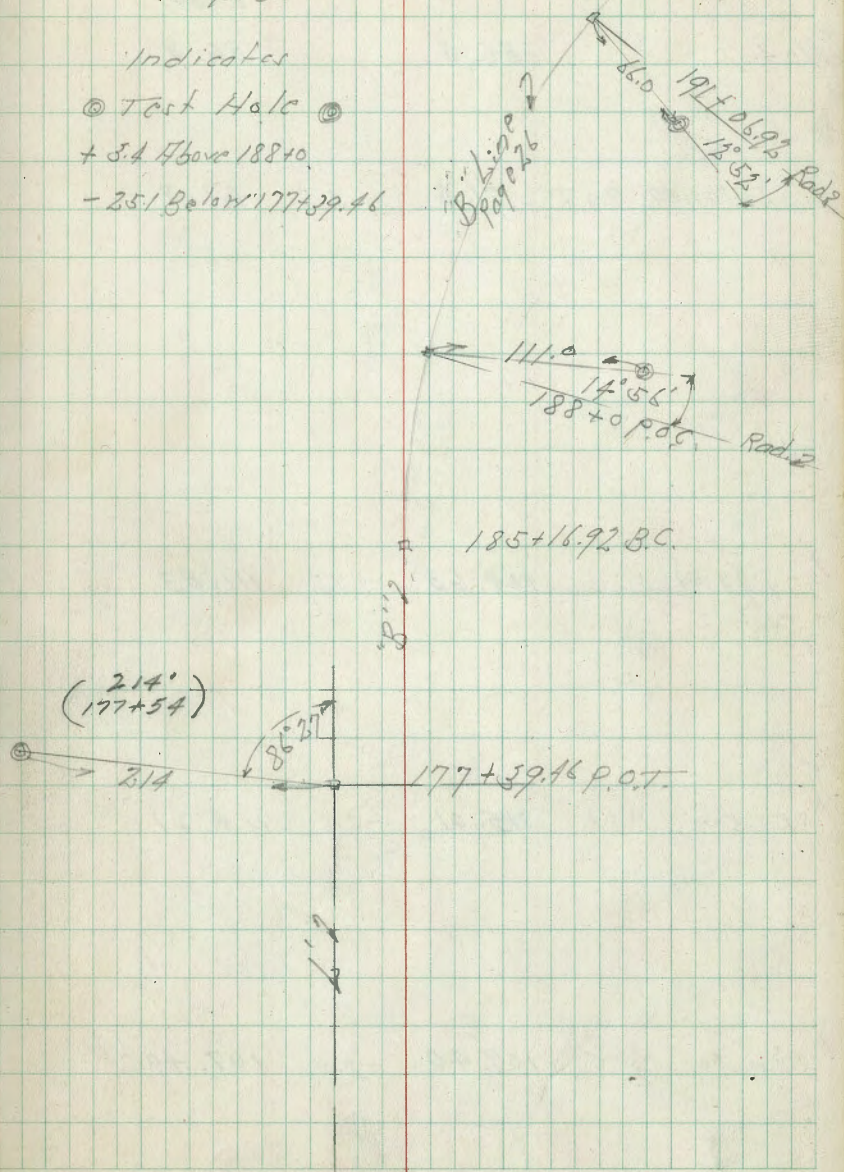 Indicates
Test Hole
+ 3.4 Above 188+0
- 251 Below 177+39.46
66.0
191+06.92
12° 52'
Rad.2
"B" Line
Page 26
111.0
14° 56'
188+0 P.O.C.
Rad.2
185+16.92 B.C.
"B"
214'
(177+54)
86° 27'
214
177+39.46 P.O.T.
"L"